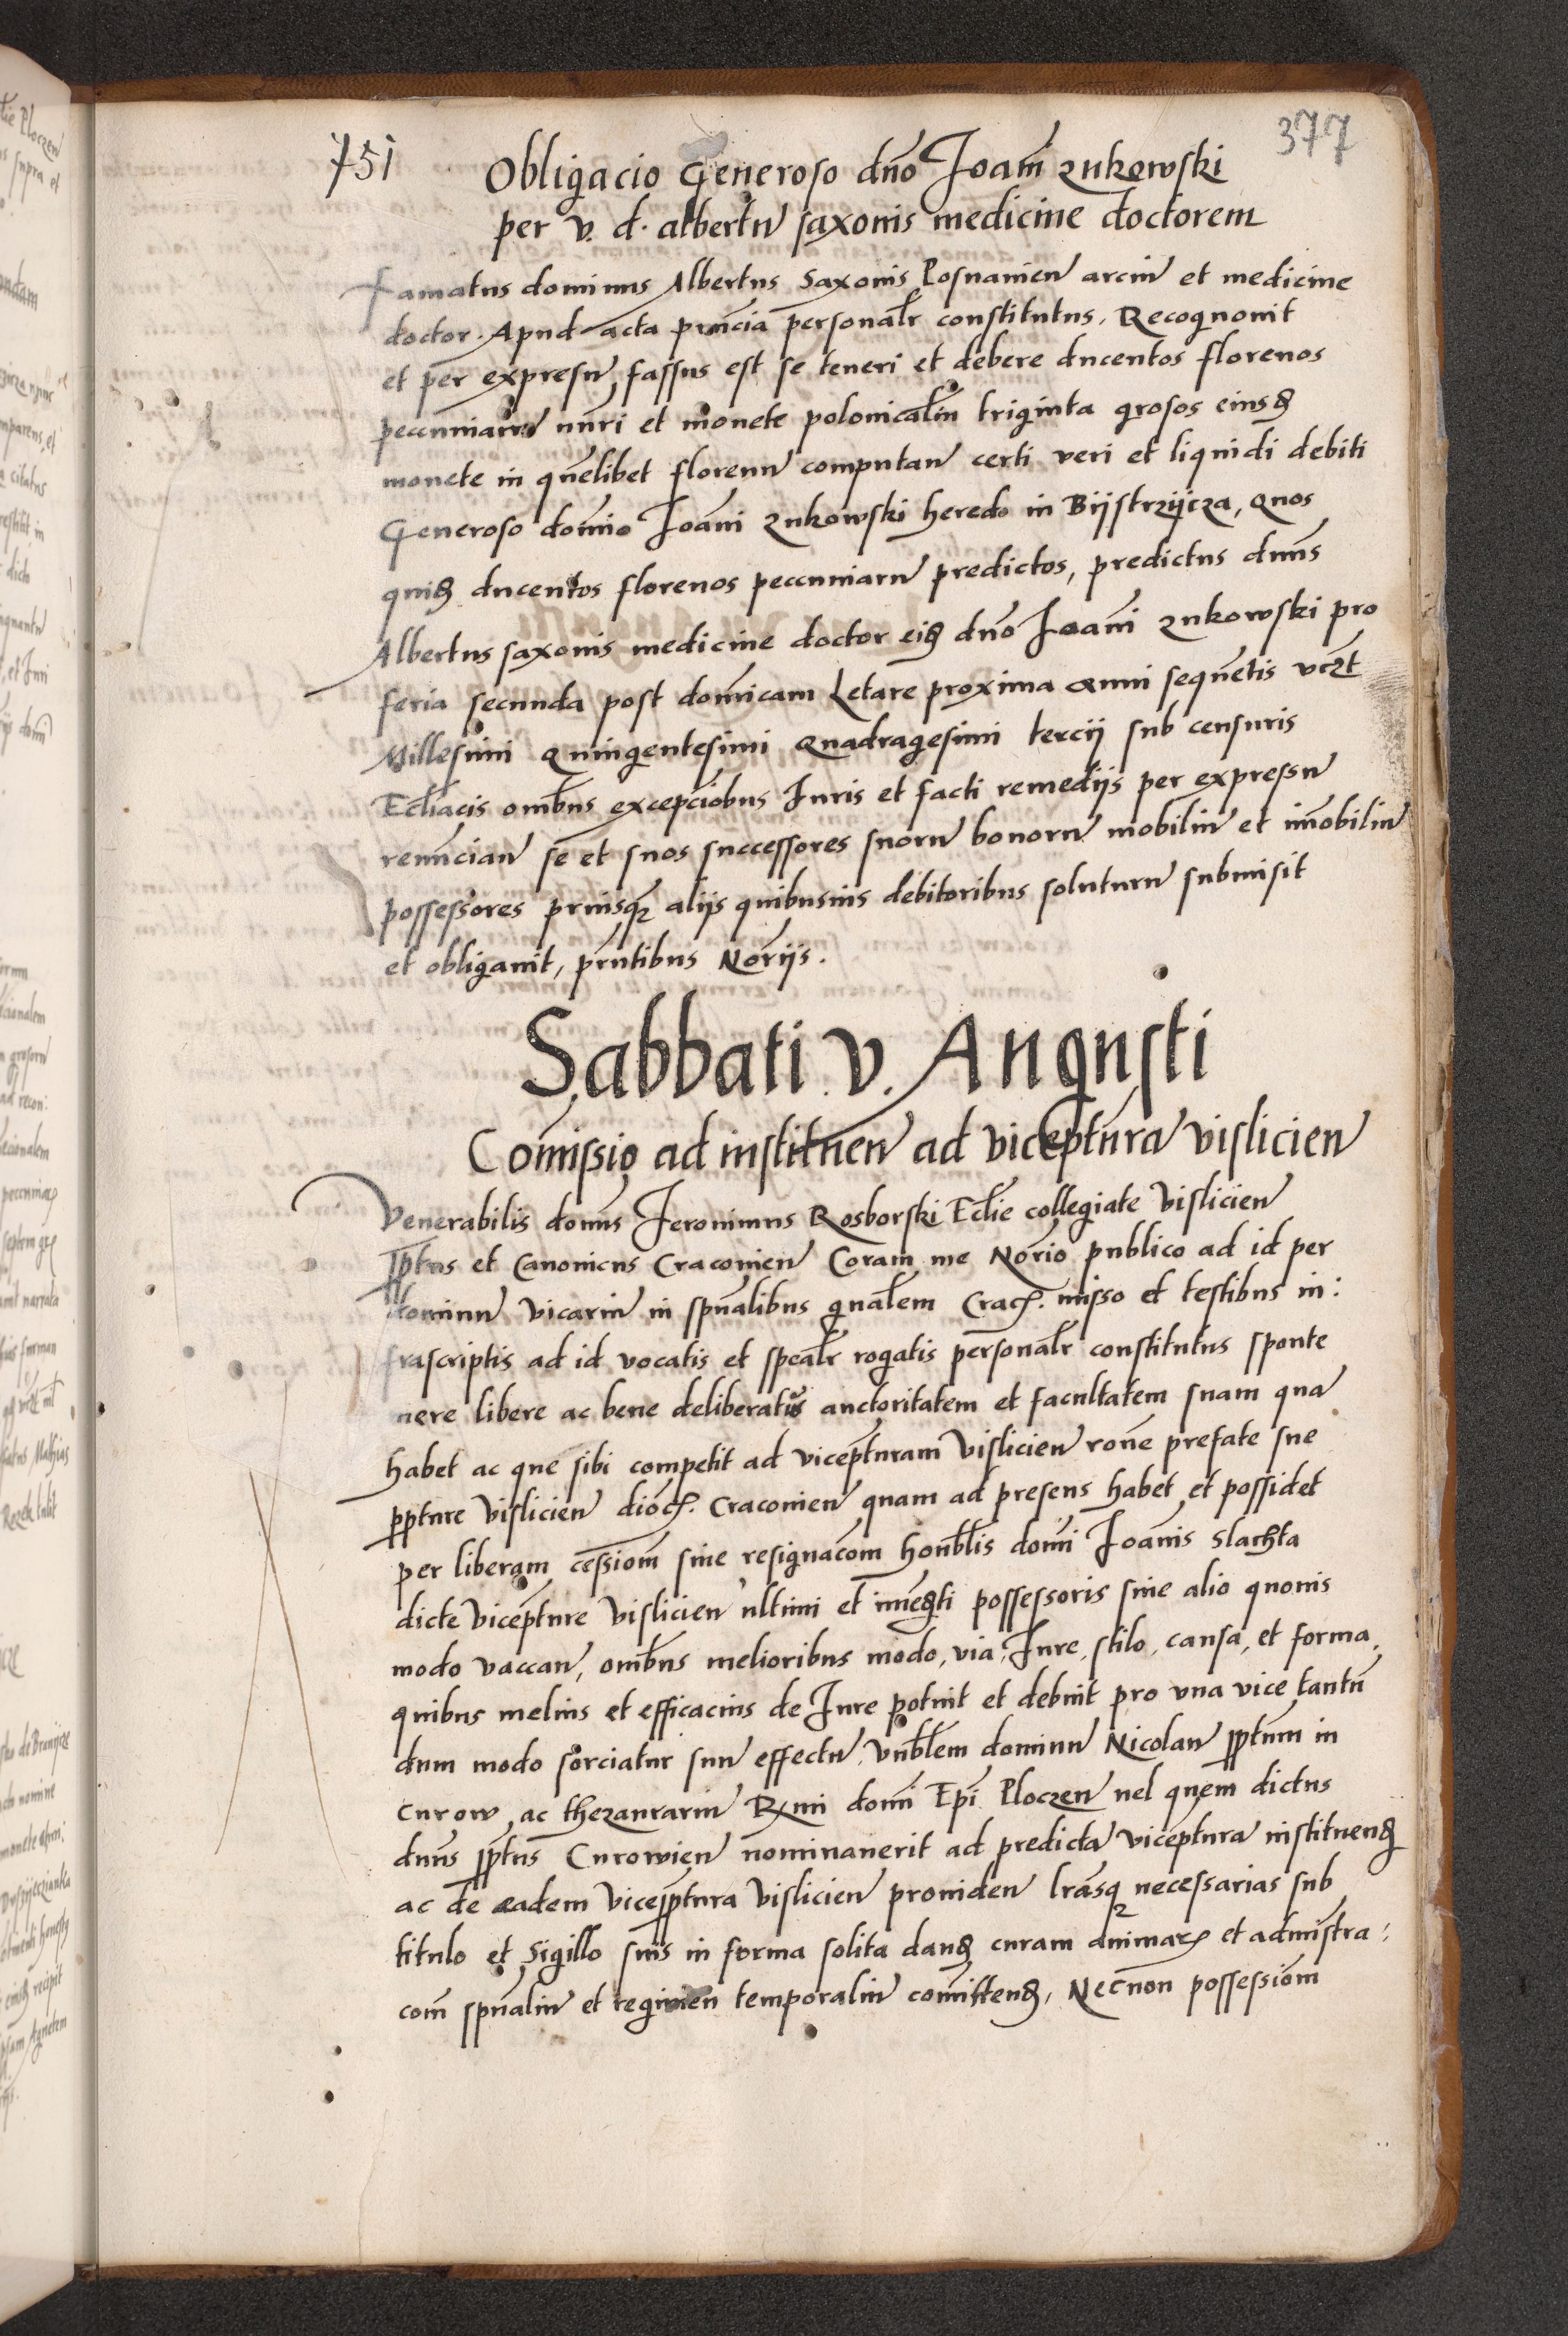 751
377
Obligacio Generoso dno Ioan̄ Zukowski
per v. d. albertu saxonis medicine doctorem
Famatus dominus Albertus Saxonis Posnanien arciu et medicine
doctor. Apud acta prncia personalr constitutus. Recognouit
et per expressu fassus est se teneri et debere ducentos florenos
peccuniaru nūri et monete polonicaliu triginta grosos eiusd
monete in quēlibet florenu computan certi veri et liquidi debiti
Generoso domīo Ioanni Zukowski heredo in Bijstrzijcza, Quos
quid ducentos florenos peccuniaru predictos, predictus dnus
Albertus saxonis medicine doctor eid dno Ioāni Zukowski pro
feria secunda post domīcam Letare proxima anni sequētis vczt
Millesimi Quingentesimi Quadragesimi tercij sub censuris
Eccliacis omībus excepciōbus Iuris et facti remedijs per expressu
renūcian se et suos successores suoru bonoru mobiliu et īmobiliu
possessores priusqz alijs quibusuis debitoribus soluturu submisit
et obligauit, prntibus Norijs.
Sabbati v. Augusti
Comissio ad instituen ad viceptura vislicien
Venerabilis domīs Ieronimus Rosborski Eclie collegiate Vislicien
pptus et Canonicus Cracouien Coram me Norio publico ad id per
dominu vicariu in spūalibus gnalem Crac. misso et testibus in:
frascriptis ad id vocatis et spealr rogatis personalr constitutus sponte
mere libere ac bene deliberatus auctoritatem et facultatem suam qua
habet ac que sibi competit ad vicepturam Vislicien rone prefate sue
ppture Vislicien dioc. Cracouien quam ad presens habet et possidet
per liberam cessiom siue resignacom honblis domi Ioānis Slachta
dicte vicepture Vislicien ultimi et imedti possessoris siue alio quouis
modo vaccan, omībus melioribus modo, via, Iure, stilo, causa, et forma,
quibus melius et efficacius de Iure potuit et debuit pro una vice tantū
dum modo sorciatur suu effectu vnblem dominu Nicolau pptum in
Curow ac thezaurariu Rmi domi Epi Ploczen uel quem dictus
dnus pptus Curowien nominauerit ad predicta viceptura instituend
ac de eadem vicepptura Vislicien prouiden lrasqz necessarias sub
titulo et Sigillo suis in forma solita dand curam animar et admīstra:
com spūaliu et regimen temporaliu comittend, Necnon possessiom